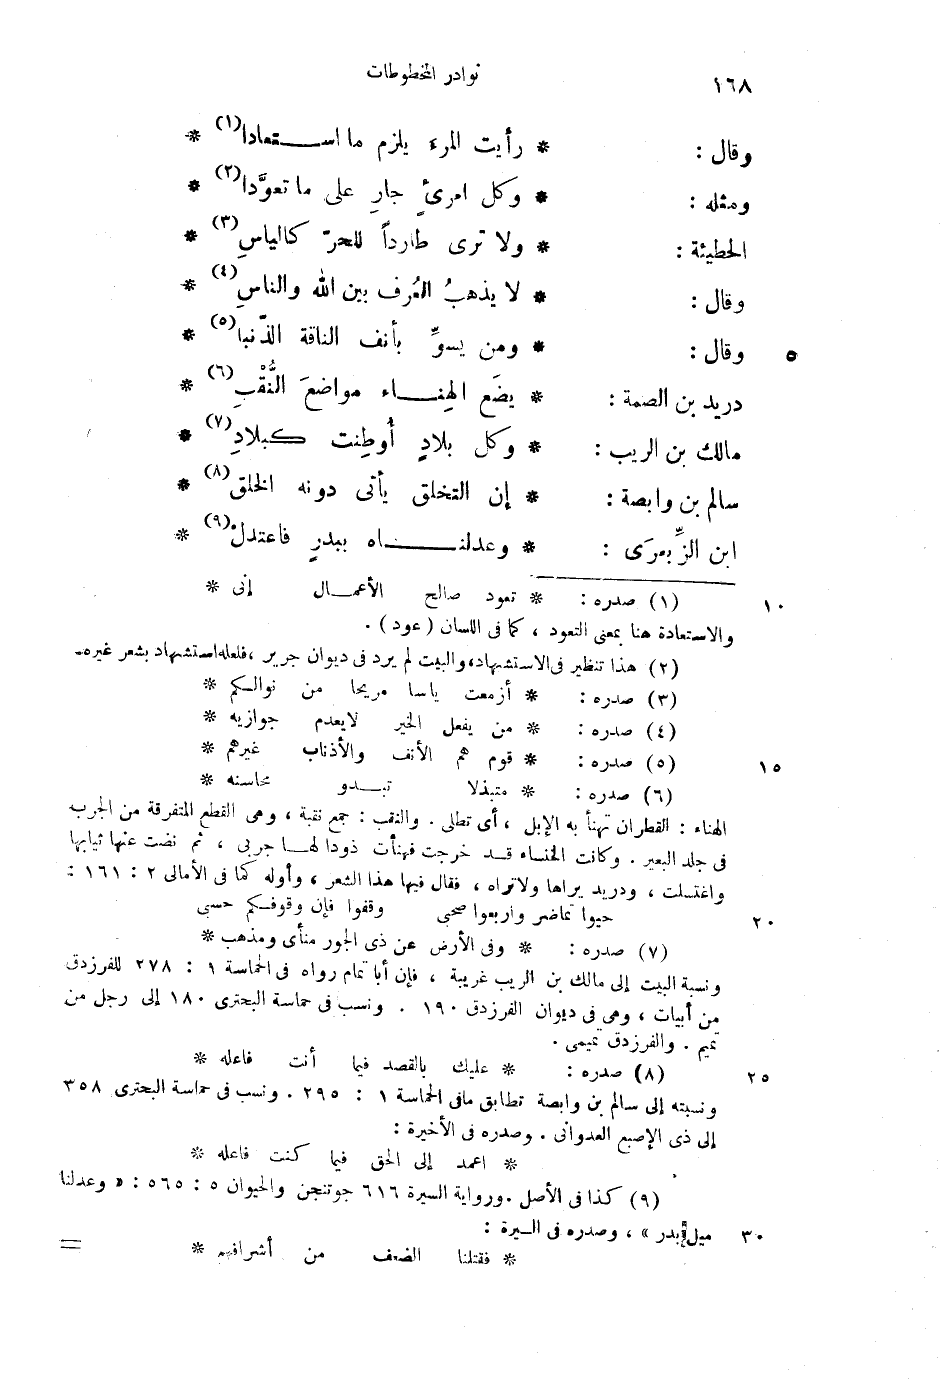 ١٦٨
نوادر المخطوطات
وقال : * رأيت المرء يلزم ما استعادا(١) *
ومثله : * وكل امرئٍ جارِ على ما تعوَّدا(٢) *
الحطيئة : * ولا ترى طارداً للحرّ كالياسِ(٣) *
وقال : * لا يذهبُ العُرف بين الله والناسِ(٤) *
٥ وقال : * ومن يسوِّ بأنف الناقة الذّنبا(٥) *
دريد بن الصمة : * يضَع الهِناء مواضعَ النُّقْبِ(٦) *
مالك بن الريب : * وكل بلادٍ أُوطِنت كبلادِ(٧) *
سالم بن وابصة : * إن التخلق يأتى دونه الخلق(٨) *
ابن الزِّبعرَى : * وعدلناه ببدرٍ فاعتدلْ(٩) *
١٠ (١) صدره : * تعود صالح الأعمال إنى *
والاستعادة هنا بمعنى التعود ، كما فى اللسان (عود) .
(٢) هذا تنظير فى الاستشهاد، والبيت لم يرد فى ديوان جرير ، فلعله استشهاد بشعر غيره.
(٣) صدره : * أزمعت ياسا مريحا من نوالكم *
(٤) صدره : * من يفعل الخير لايعدم جوازيه *
١٥ (٥) صدره : * قوم هم الأنف والأذناب غيرهم *
(٦) صدره : * متبذلا تبدو محاسنه *
الهناء : القطران تهنأ به الإبل ، أى تطلى . والنقب : جمع نقبة ، وهى القطع المتفرقة من الجرب
فى جلد البعير . وكانت الخنساء قد خرجت فهنأت ذودا لها جربى ، ثم نضت عنها ثيابها
واغتسلت ، ودريد يراها ولاتراه ، فقال فيها هذا الشعر ، وأوله كما فى الأمالى ٢ : ١٦١ :
٢٠ حيوا تماضر واربعوا صحبى وقفوا فإن وقوفكم حسبى
(٧) صدره : * وفى الأرض عن ذى الجور منأى ومذهب *
ونسبة البيت إلى مالك بن الريب غريبة ، فإن أبا تمام رواه فى الحماسة ١ : ٢٧٨ للفرزدق
من أبيات ، وهى فى ديوان الفرزدق ١٩٠ . ونسب فى حماسة البحترى ١٨٠ إلى رجل من
تميم . والفرزدق تميمى .
٢٥ (٨) صدره : * عليك بالقصد فيما أنت فاعله *
ونسبته إلى سالم بن وابصة تطابق مافى الحماسة ١ : ٢٩٥ . ونسب فى حماسة البحترى ٣٥٨
إلى ذى الإصبع العدوانى . وصدره فى الأخيرة :
* اعمد إلى الحق فيما كنت فاعله *
(٩) كذا فى الأصل . ورواية السيرة ٦١٦ جوتنجن والحيوان ٥ : ٥٦٥ : « وعدلنا
٣٠ ميل بدر » ، وصدره فى السيرة :
* فقتلنا الضعف من أشرافهم *
=